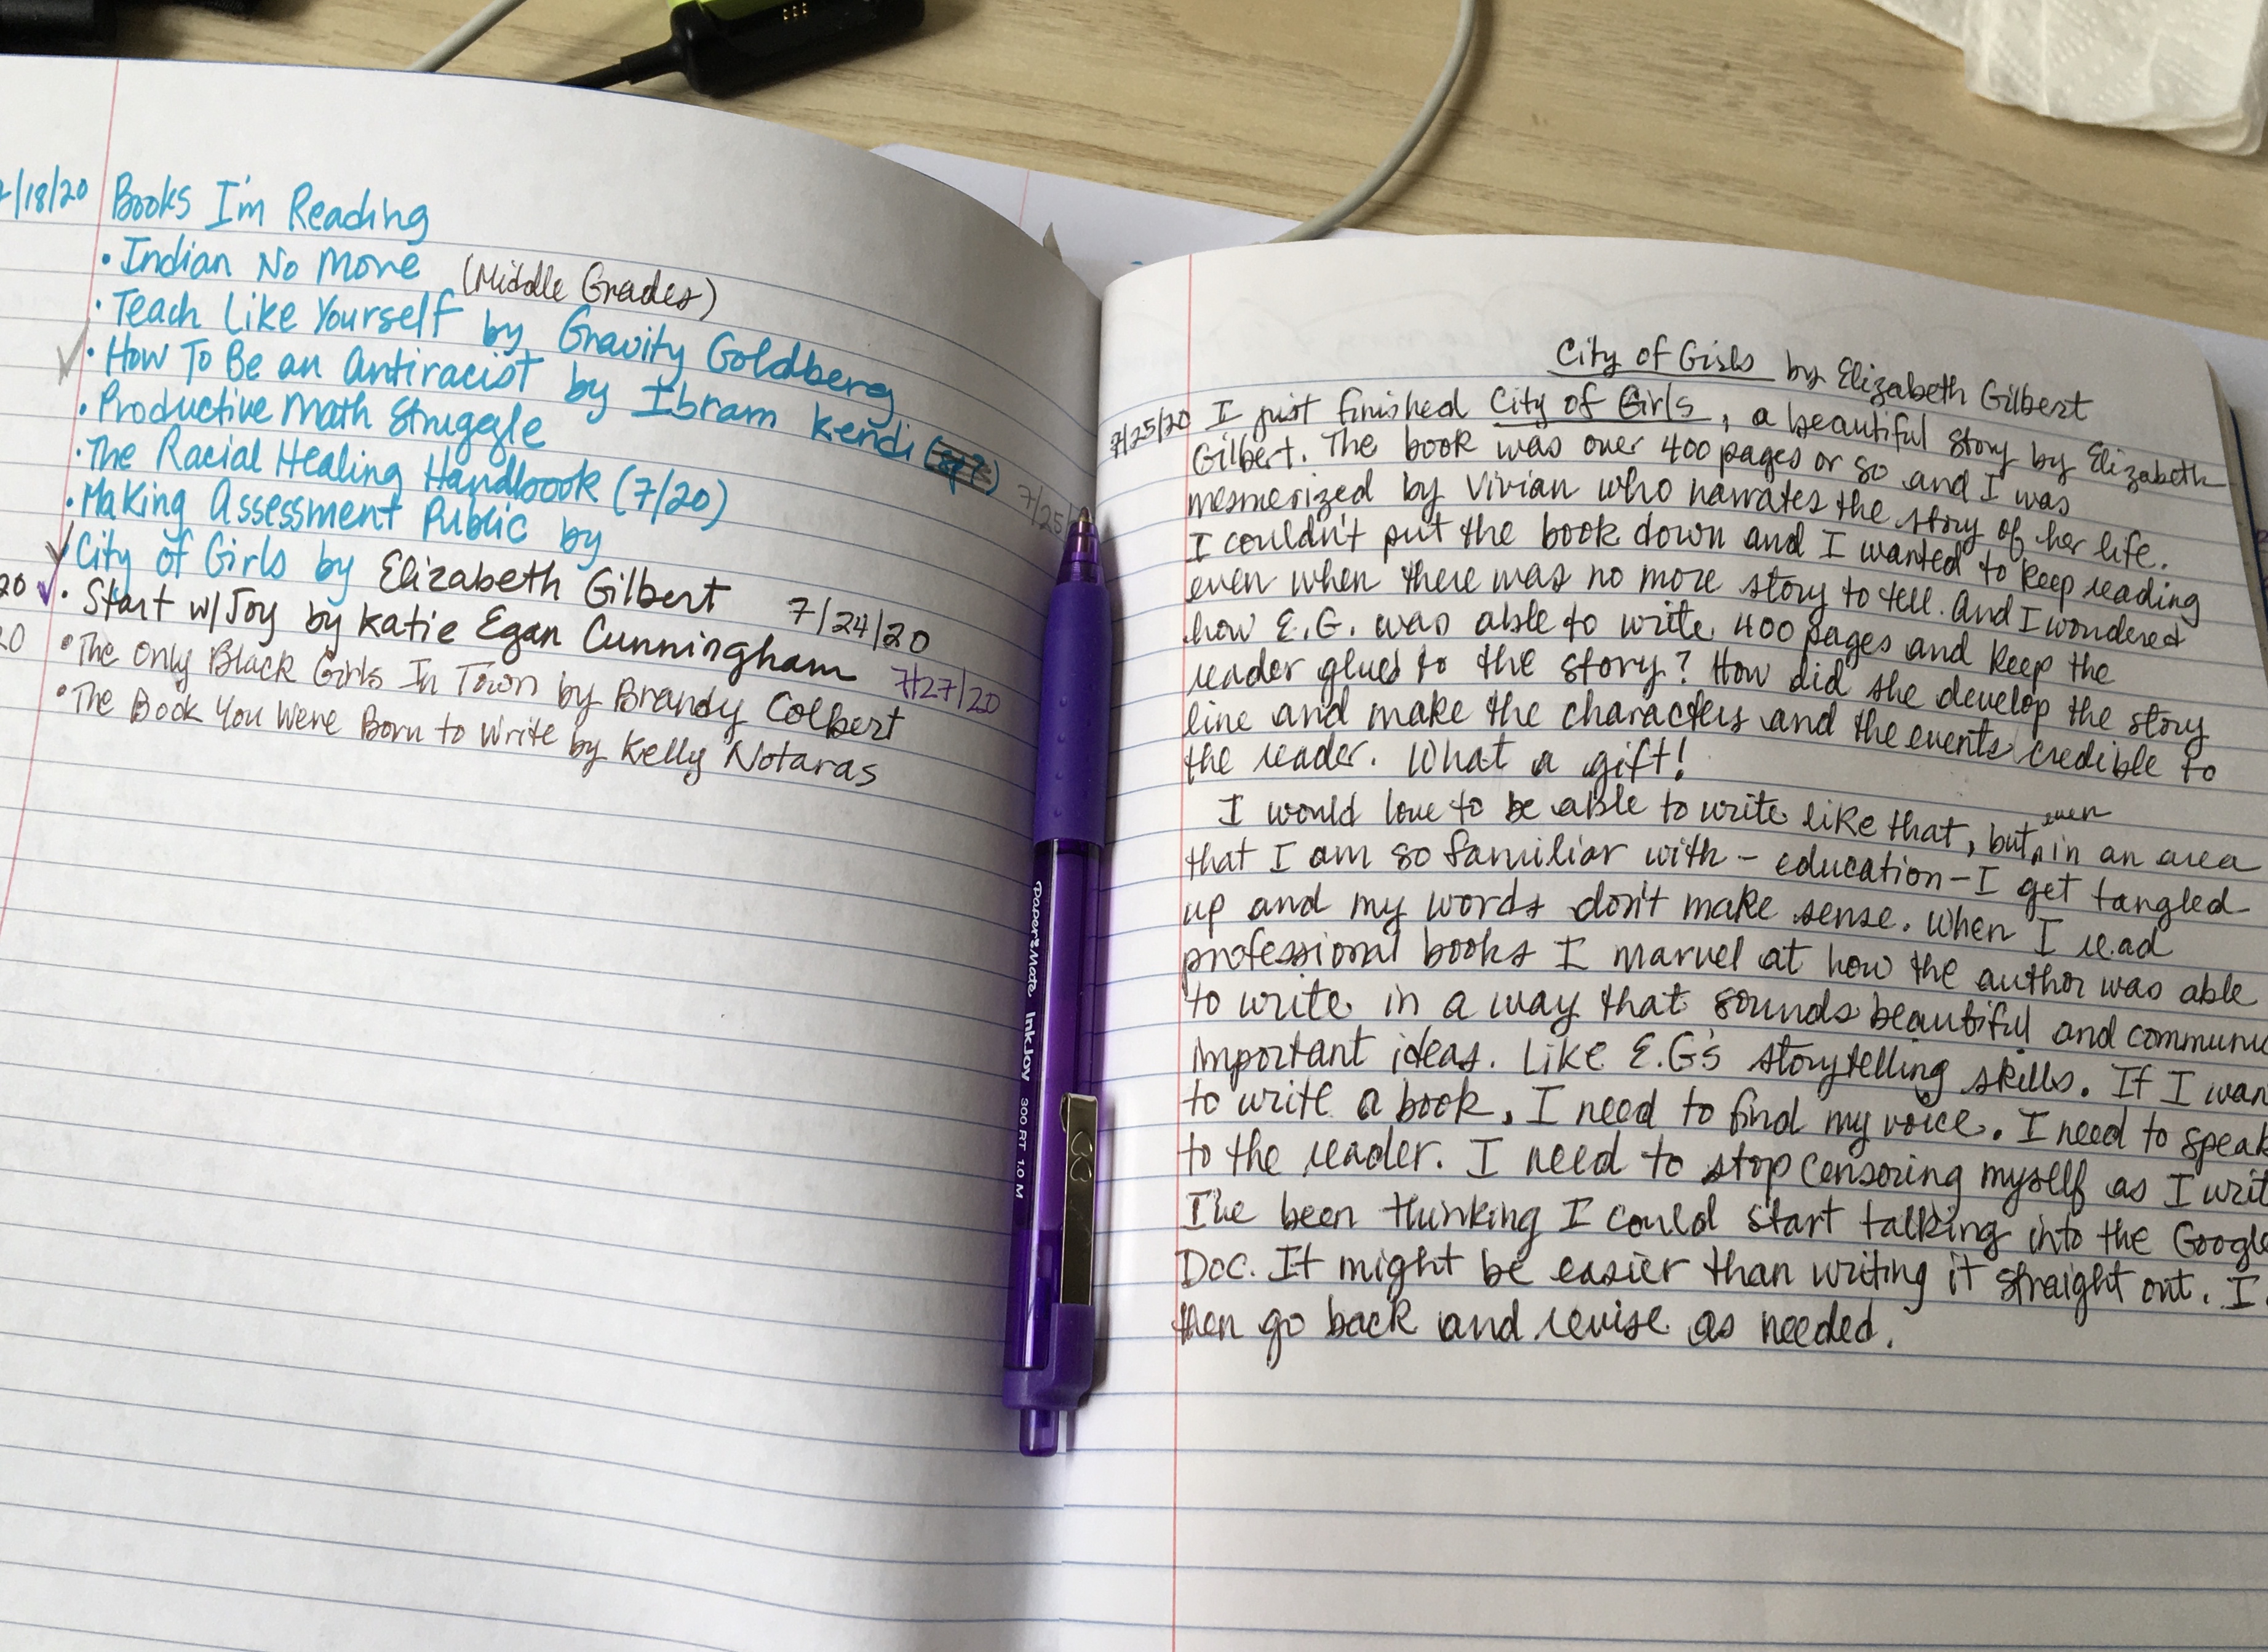 /18/20 Books I'm Reading
• Indian No More (Middle Grades)
• Teach Like Yourself by Gravity Goldberg
• How To Be an Antiracist by Ibram Kendi 7/25/
• Productive Math Struggle
• The Racial Healing Handbook (7/20)
• Making Assessment Public by
City of Girls by Elizabeth Gilbert 7/24/20
20 • Start w/ Joy by Katie Egan Cunningham 7/27/20
20 • The Only Black Girls In Town by Brandy Colbert
• The Book You Were Born to Write by Kelly Notaras
PaperMate InkJoy 300 RT 1.0 M
City of Girls by Elizabeth Gilbert
7/25/20 I just finished City of Girls, a beautiful story by Elizabeth
Gilbert. The book was over 400 pages or so and I was
mesmerized by Vivian who narrates the story of her life.
I couldn't put the book down and I wanted to keep reading
even when there was no more story to tell. And I wondered
how E.G. was able to write 400 pages and keep the
reader glued to the story? How did she develop the story
line and make the characters and the events credible to
the reader. What a gift!
I would love to be able to write like that, but even in an area
that I am so familiar with - education - I get tangled
up and my words don't make sense. When I read
professional books I marvel at how the author was able
to write in a way that sounds beautiful and communic
important ideas. Like E.G's storytelling skills. If I wan
to write a book, I need to find my voice. I need to speak
to the reader. I need to stop censoring myself as I writ
I've been thinking I could start talking into the Google
Doc. It might be easier than writing it straight out. I
then go back and revise as needed.